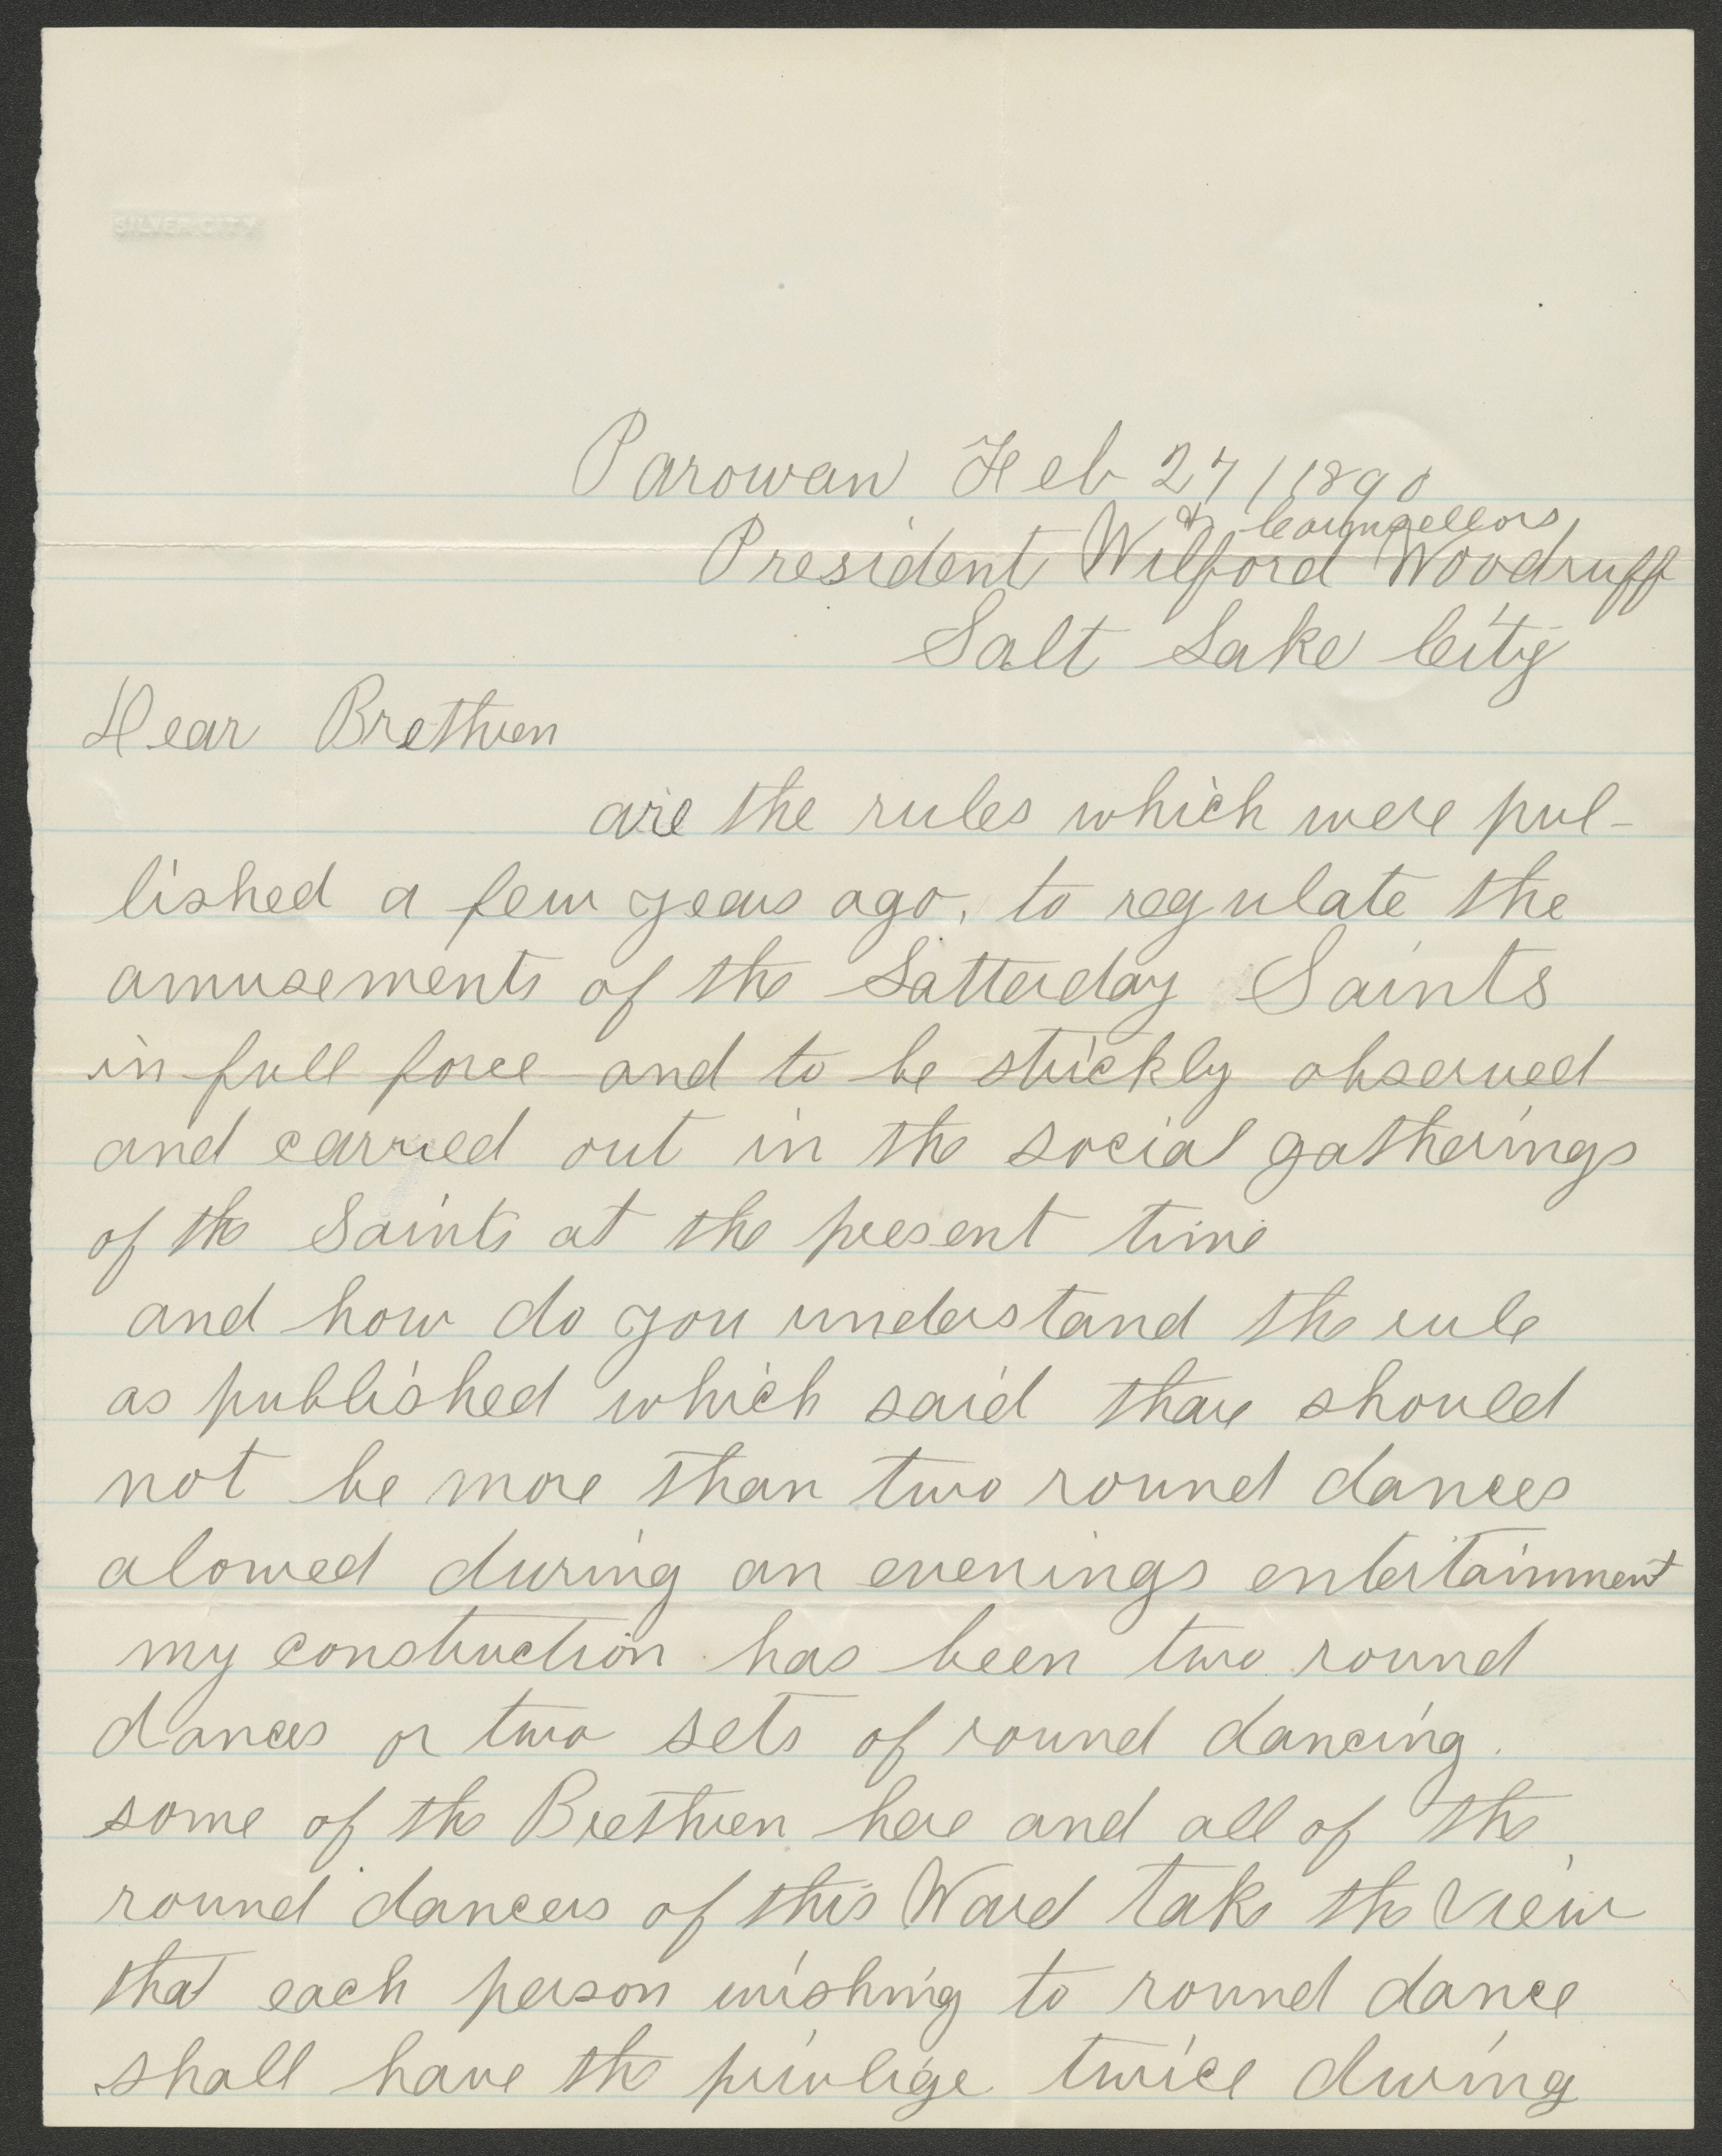 SILVER CITY
Parowan Feb 27/1890
& Counsellors
President Wilford Woodruff
Salt Lake City
Dear Brethren
are the rules which were pub-
lished a few years ago, to regulate the
amusements of the Latterday Saints
in full force and to be strickly observed
and carried out in the social gatherings
of the Saints at the present time
and how do you understand the rule
as published which said thare should
not be more than two round dances
alowed during an evenings entertainment
my construction has been two round
dances or two sets of round dancing.
some of the Brethren here and all of the
round dancers of this Ward take the view
that each person wishing to round dance
shall have the privlige twice during